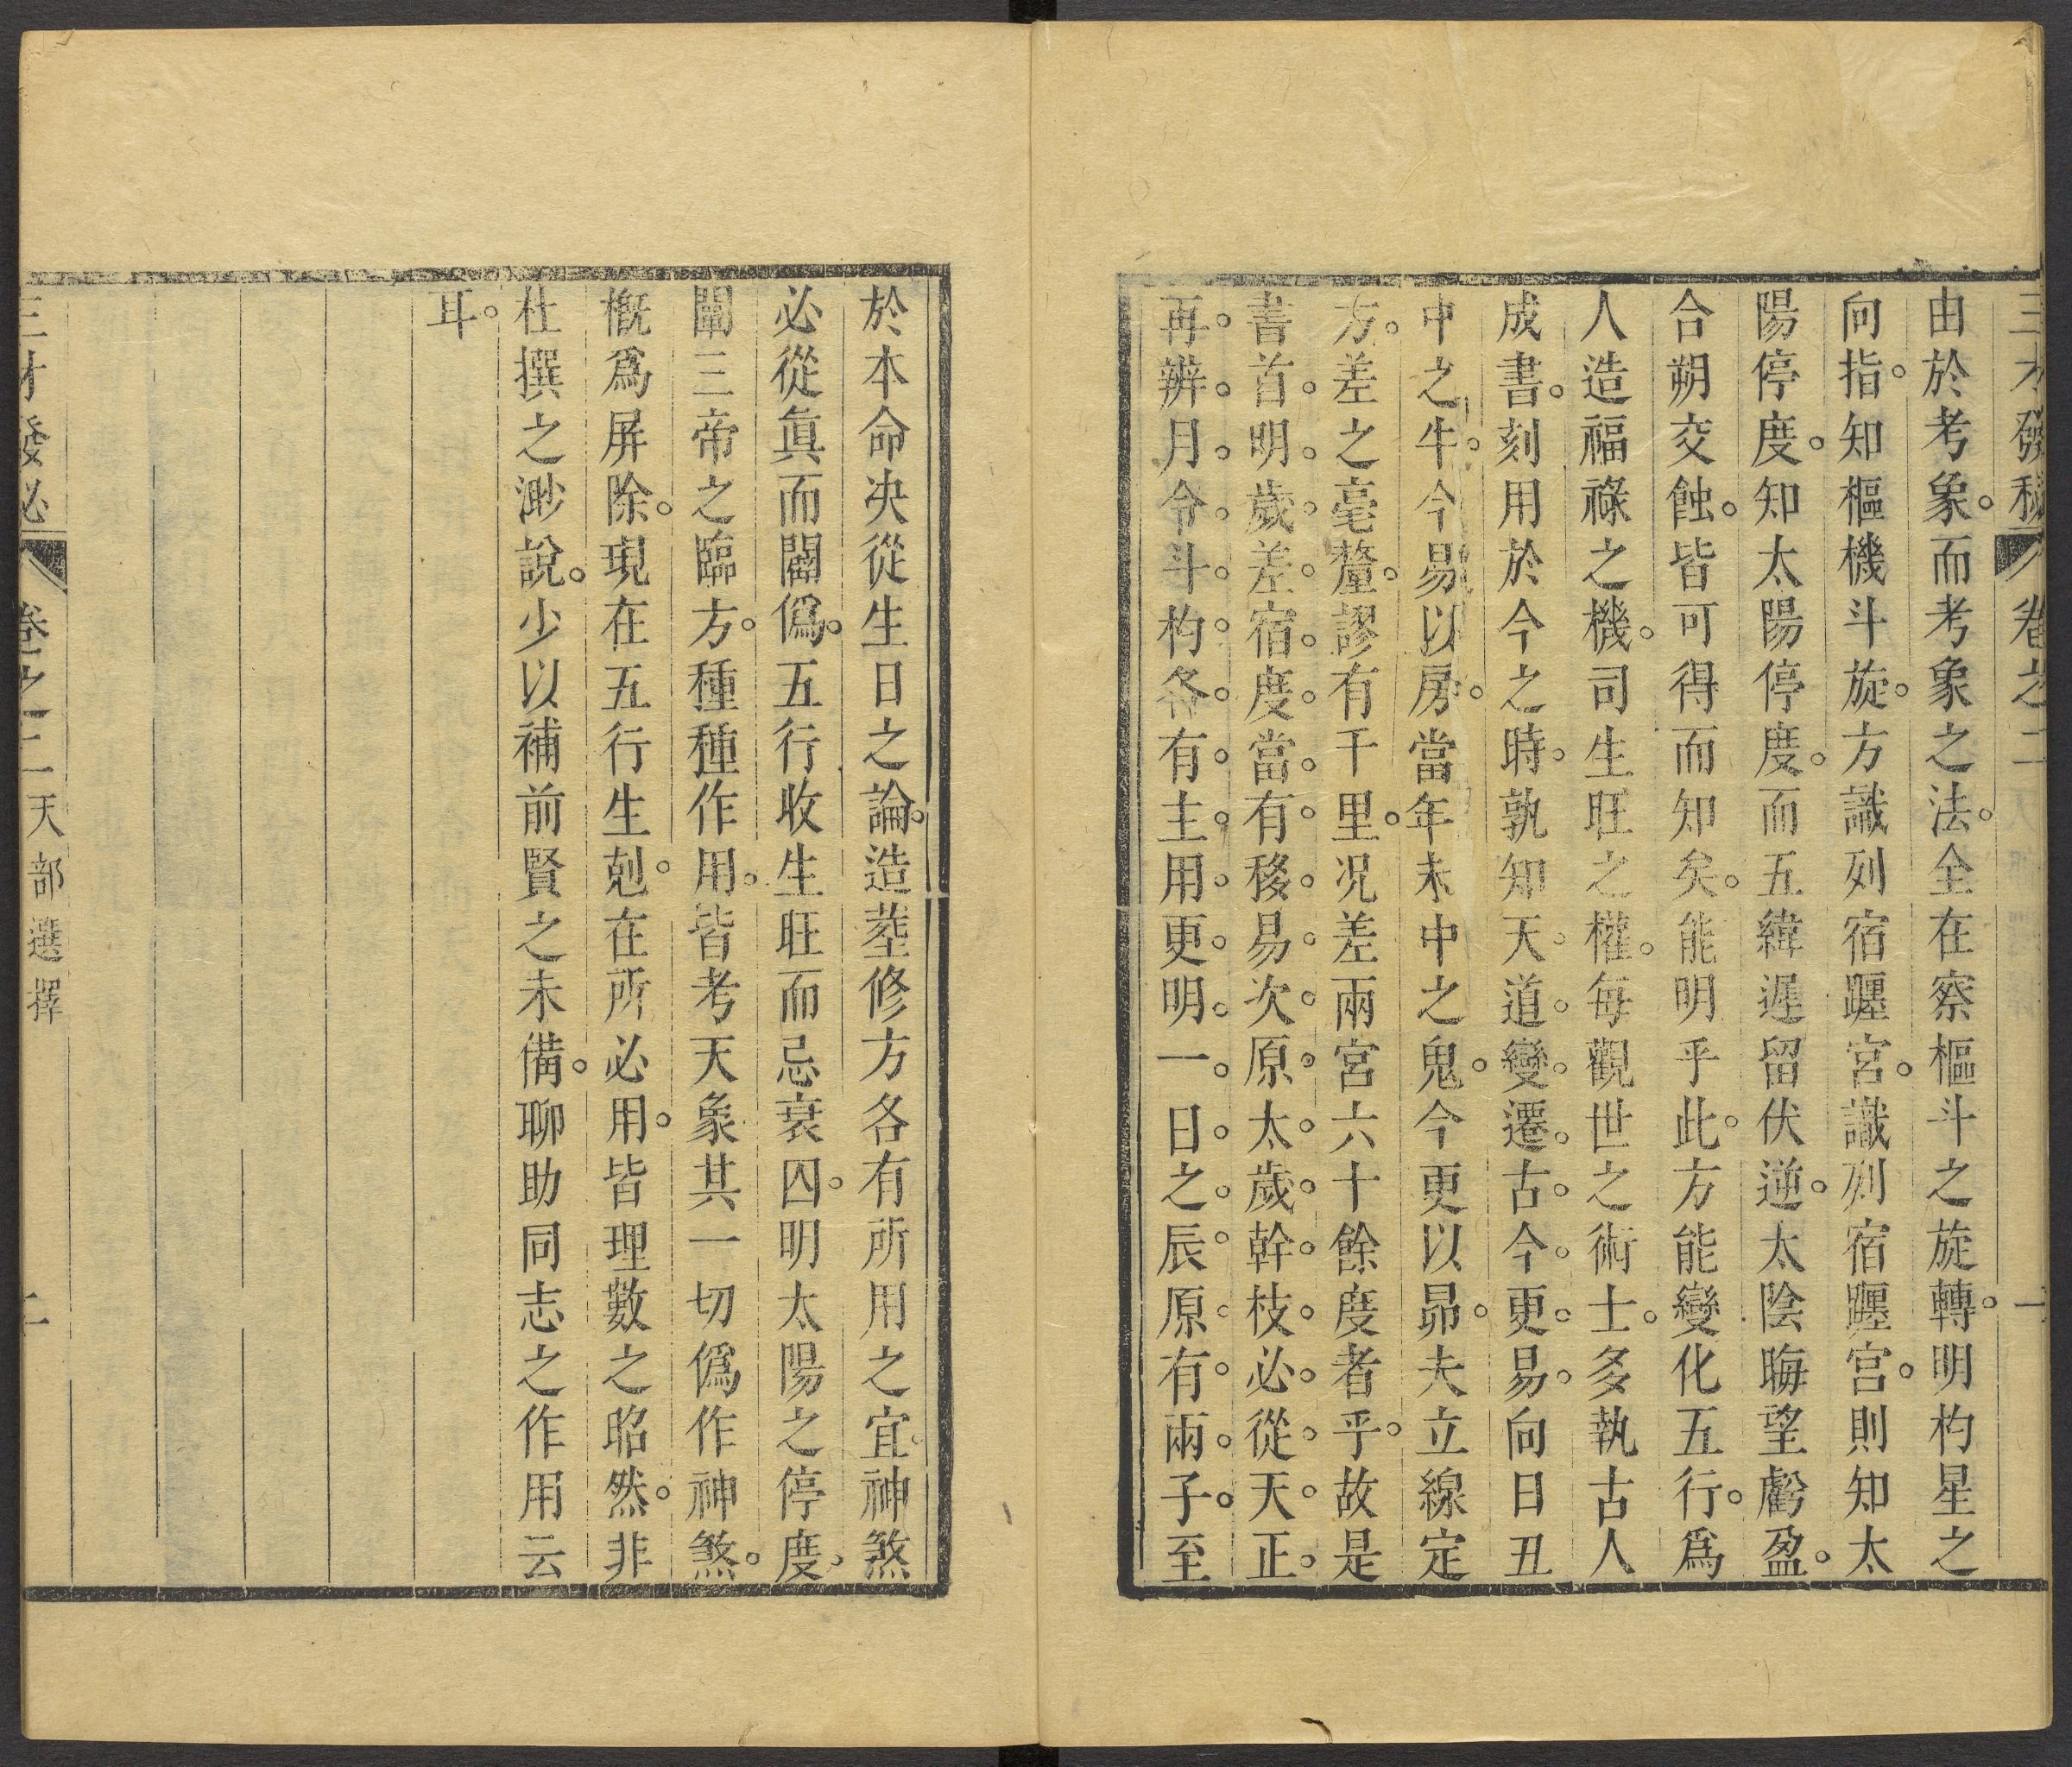 三才發秘 卷之二 一
由於考象。而考象之法。全在察樞斗之旋轉。明杓星之
向指。知樞機斗旋。方識列宿躔宮。識列宿躔宮。則知太
陽停度。知太陽停度。而五緯遲留伏逆。太陰晦望虧盈。
合朔交蝕。皆可得而知矣。能明乎此。方能變化五行。爲
人造福祿之機。司生旺之權。每觀世之術士。多執古人
成書。刻用於今之時。孰知天道變遷。古今更易。向日丑
中之牛。今易以房。當年未中之鬼。今更以昴。夫立線定
方。差之毫釐。謬有千里。况差兩宮六十餘度者乎。故是
書首明歲差宿度。當有移易。次原太歲幹枝。必從天正。
再辨月令斗杓。各有主用。更明一日之辰。原有兩子。至
於本命决從生日之論。造塟修方各有所用之宜。神煞
必從眞而闢僞。五行收生旺而忌衰囚。明太陽之停度。
闡三帝之臨方。種種作用。皆考天象。其一切僞作神煞。
槪爲屏除。現在五行生剋。在所必用。皆理數之昭然。非
杜撰之渺說。少以補前賢之未備。聊助同志之作用云
耳。
三才發秘 卷之二 天部選擇